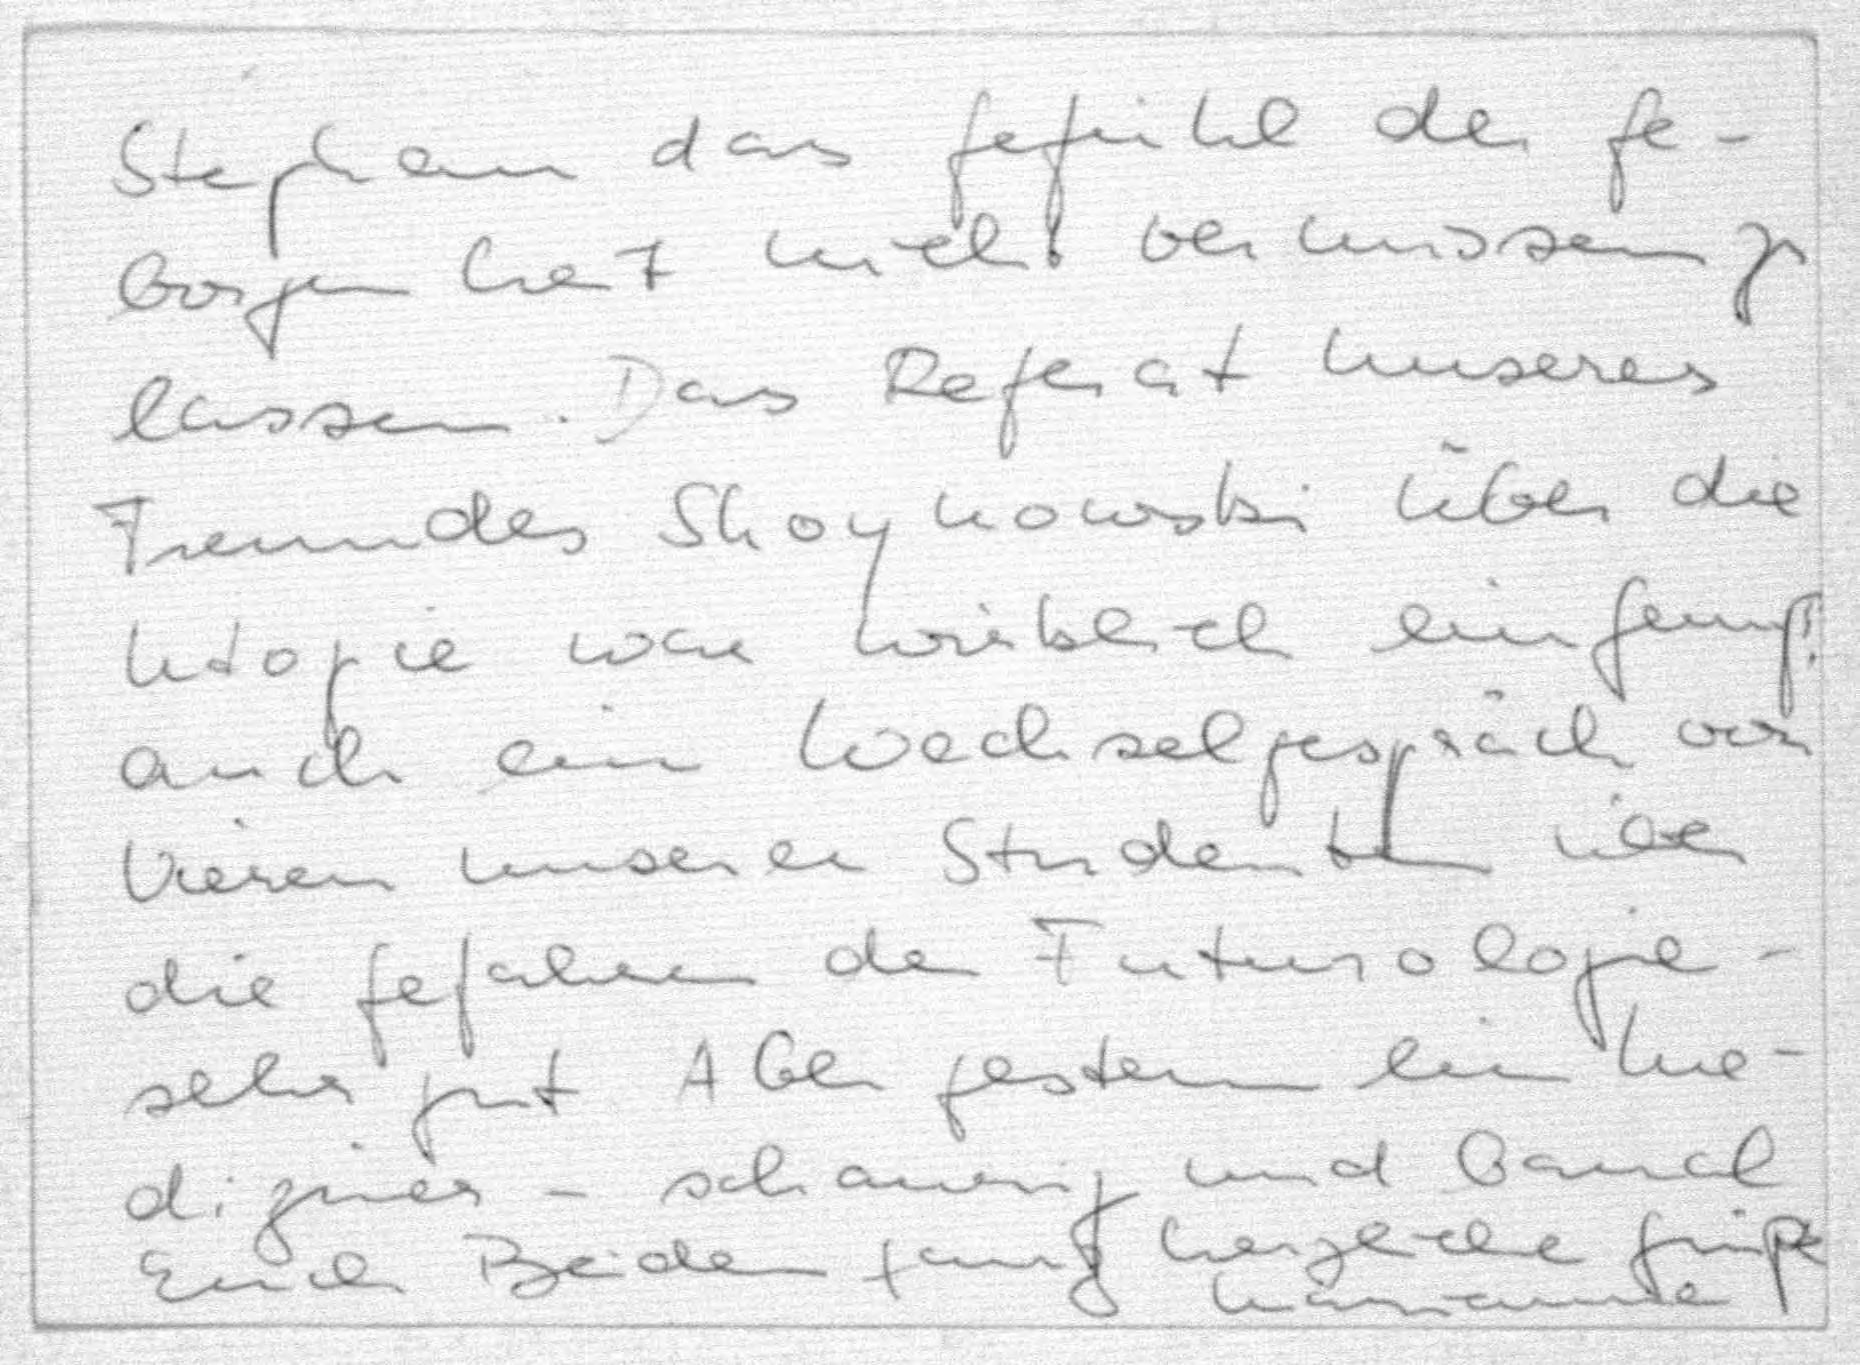 Stephan das Gefühl der Ge-
borgenheit nicht vermissen zu
lassen. Das Referat unseres
Freundes Skoynowski über die
Utopie war wirklich ein Genuß!
auch ein Wechselgespräch von
Vieren unserer Studenten über
die Gefahren der Futurologie -
sehr gut. Aber gestern ein Me-
diziner - schaurig und banal
Euch Beiden ganz herzliche Grüße